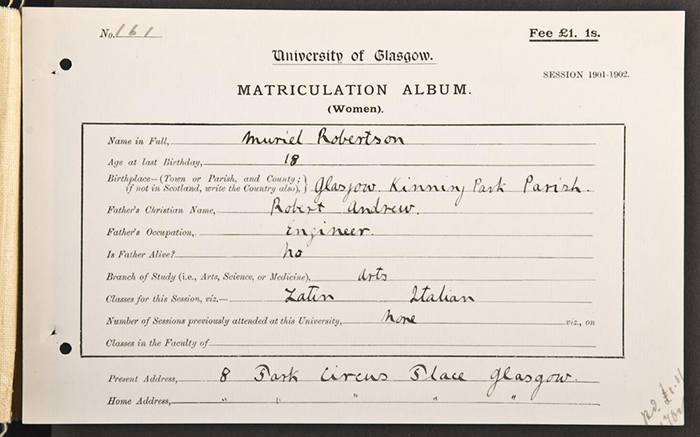 No. 161
Fee £1. 1s.
University of Glasgow.
SESSION 1901-1902.
MATRICULATION ALBUM.
(Women).
Name in Full, Muriel Robertson
Age at last Birthday, 18
Birthplace—(Town or Parish, and County;
if not in Scotland, write the Country also), } Glasgow. Kinning Park Parish.
Father's Christian Name, Robert Andrew.
Father's Occupation, Engineer.
Is Father Alive? No
Branch of Study (i.e., Arts, Science, or Medicine), Arts
Classes for this Session, viz.— Latin Italian
Number of Sessions previously attended at this University, None viz., on
Classes in the Faculty of
Present Address, 8 Park Circus Place Glasgow.
Home Address, " " " " "